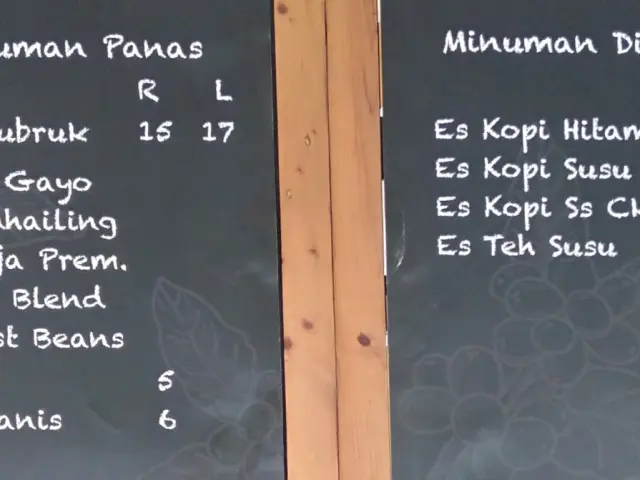 uman Panas
R L
ubruk 15 17
Gayo
hailing
ja Prem.
Blend
st Beans
5
anis 6
Minuman Di
Es Kopi Hitam
Es Kopi Susu
Es Kopi Ss Ch
Es Teh Susu